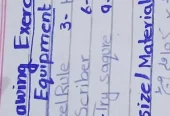 awing Exerc
Equipment
el Rule 3-
Scriber 6-
Try saqure 9.
size/Material